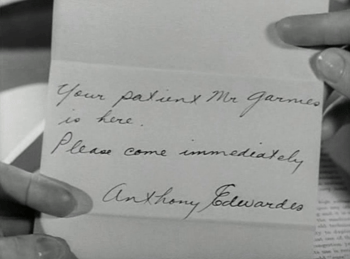 Your patient Mr Garmes
is here.
Please come immediately
Anthony Edwardes